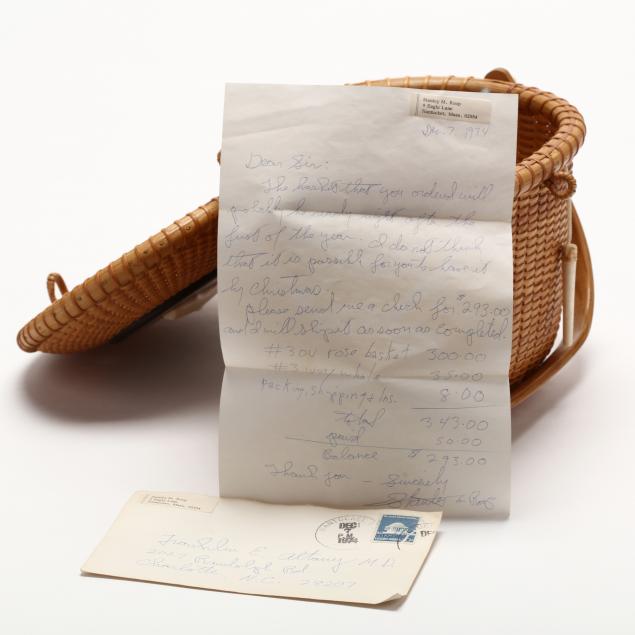 Stanley M. Roop
9 Eagle Lane
Nantucket, Mass. 02554
Dec. 7, 1974
Dear Sir:
The basket that you ordered will
probably be ready right after the
first of the year. I do not think
that it is possible for you to have it
by Christmas.
Please send me a check for $293.00
and I will ship it as soon as completed.
#3 rose basket 300.00
#3 ivory whale 35.00
Packing, shipping & Ins. 8.00
total 343.00
paid 50.00
Balance $293.00
Thank you - Sincerely
Stanley M. Roop
Stanley M. Roop
9 Eagle Lane
Nantucket, Mass. 02554
DEC
7
PM
1974
Franklin E. M.D.
Randolph Rd
Charlotte, N.C. 28207